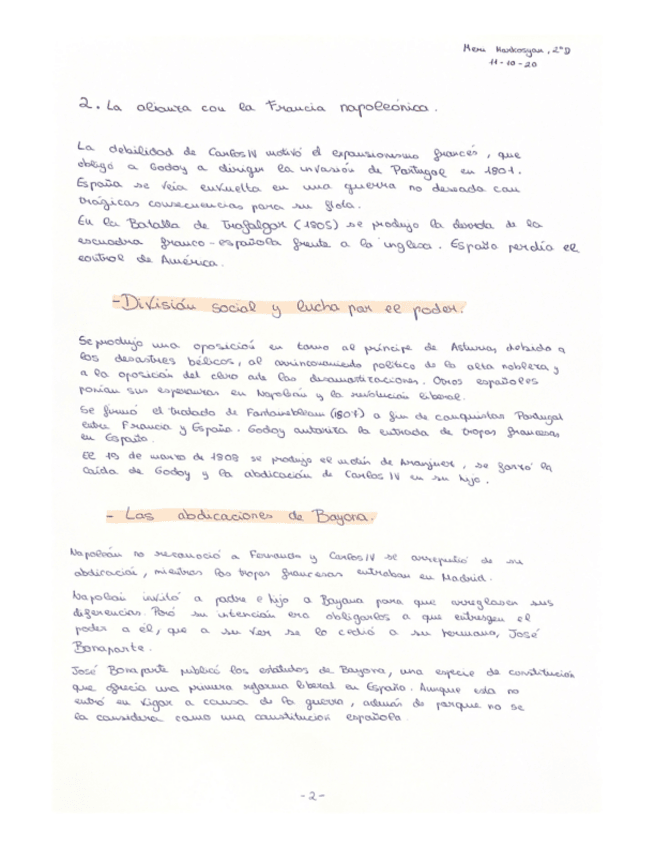 Meri Markosyan, 2ºD
11-10-20
2. La alianza con la Francia napoleónica.
La debilidad de Carlos IV motivó el expansionismo francés, que
obligó a Godoy a dirigir la invasión de Portugal en 1801.
España se veía envuelta en una guerra no deseada con
trágicas consecuencias para su flota.
En la Batalla de Trafalgar (1805) se produjo la derrota de la
escuadra franco-española frente a la inglesa. España perdía el
control de América.
-División social y lucha por el poder.
Se produjo una oposición en torno al príncipe de Asturias, debido a
los desastres bélicos, al arrinconamiento político de la alta nobleza y
a la oposición del clero ante las desamortizaciones. Otros españoles
ponían sus esperanzas en Napoleón y la revolución liberal.
Se firmó el tratado de Fontainebleau (1807) a fin de conquistar Portugal
entre Francia y España. Godoy autoriza la entrada de tropas francesas
en España.
El 19 de marzo de 1808 se produjo el motín de Aranjuez, se forzó la
caída de Godoy y la abdicación de Carlos IV en su hijo.
- Las abdicaciones de Bayona.
Napoleón no reconoció a Fernando y Carlos IV se arrepintió de su
abdicación, mientras las tropas francesas entraban en Madrid.
Napoleón invitó a padre e hijo a Bayona para que arreglasen sus
diferencias. Peró su intención era obligarlos a que entreguen el
poder a él, que a su vez se lo cedió a su hermano, José
Bonaparte.
José Bonaparte publicó los estatutos de Bayona, una especie de constitución
que ofrecía una primera reforma liberal en España. Aunque esta no
entró en vigor a causa de la guerra, además de porque no se
la considera como una constitución española.
-2-